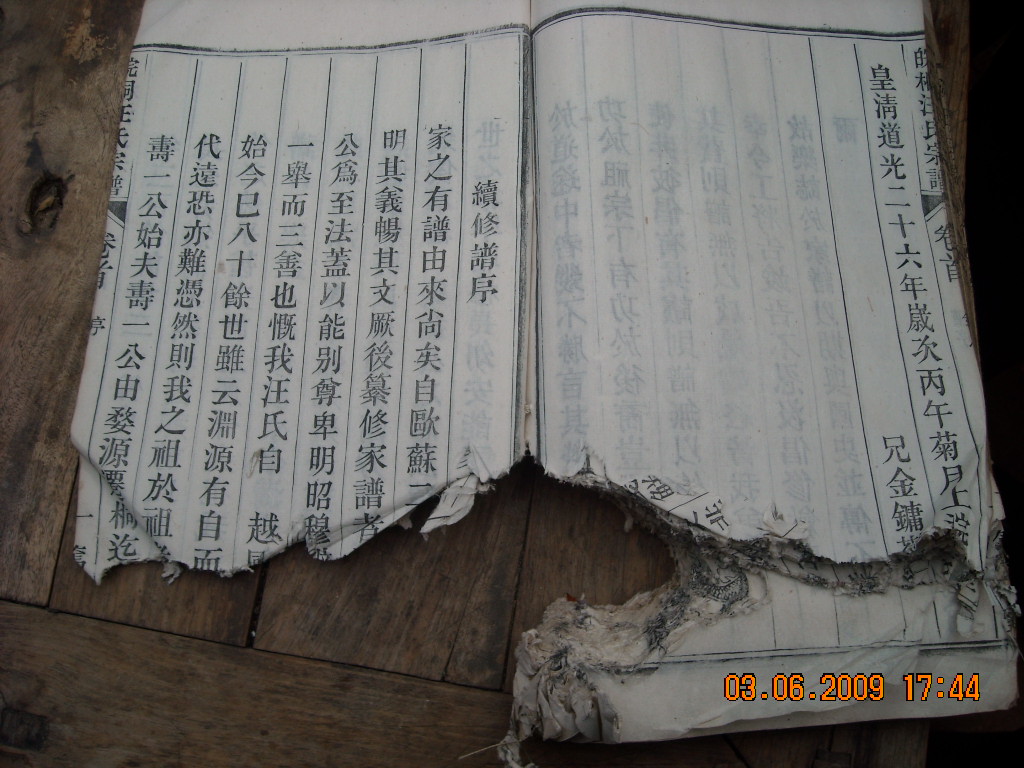 皖桐汪氏宗譜
卷首
皇清道光二十六年歲次丙午菊月上
兄金鏞
續修譜序
家之有譜由來尙矣自歐蘇二
明其義暢其文厥後纂修家譜者
公爲至法蓋以能別尊卑明昭穆
一舉而三善也慨我汪氏自 越
始今已八十餘世雖云淵源有自而
代遠恐亦難憑然則我之祖於祖
壽一公始夫壽一公由婺源遷桐迄
皖桐汪氏宗譜
卷首
序
一
03.06.2009 17:44